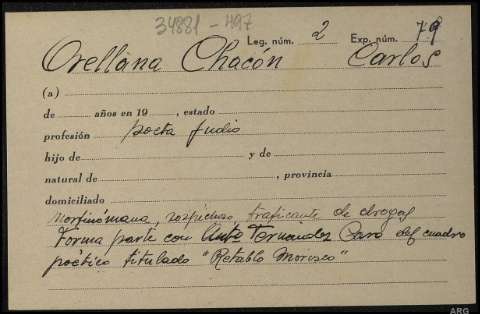 34881-497
Leg. núm. 2 Exp. núm. 79
Orellana Chacón Carlos
(a)
de años en 19 , estado
profesión poeta judio
hijo de y de
natural de , provincia
domiciliado
Morfinómana, sospechoso, traficante de drogas
Forma parte con Antº Fernandez Caro del cuadro
poético titulado "Retablo Morisco"
ARG